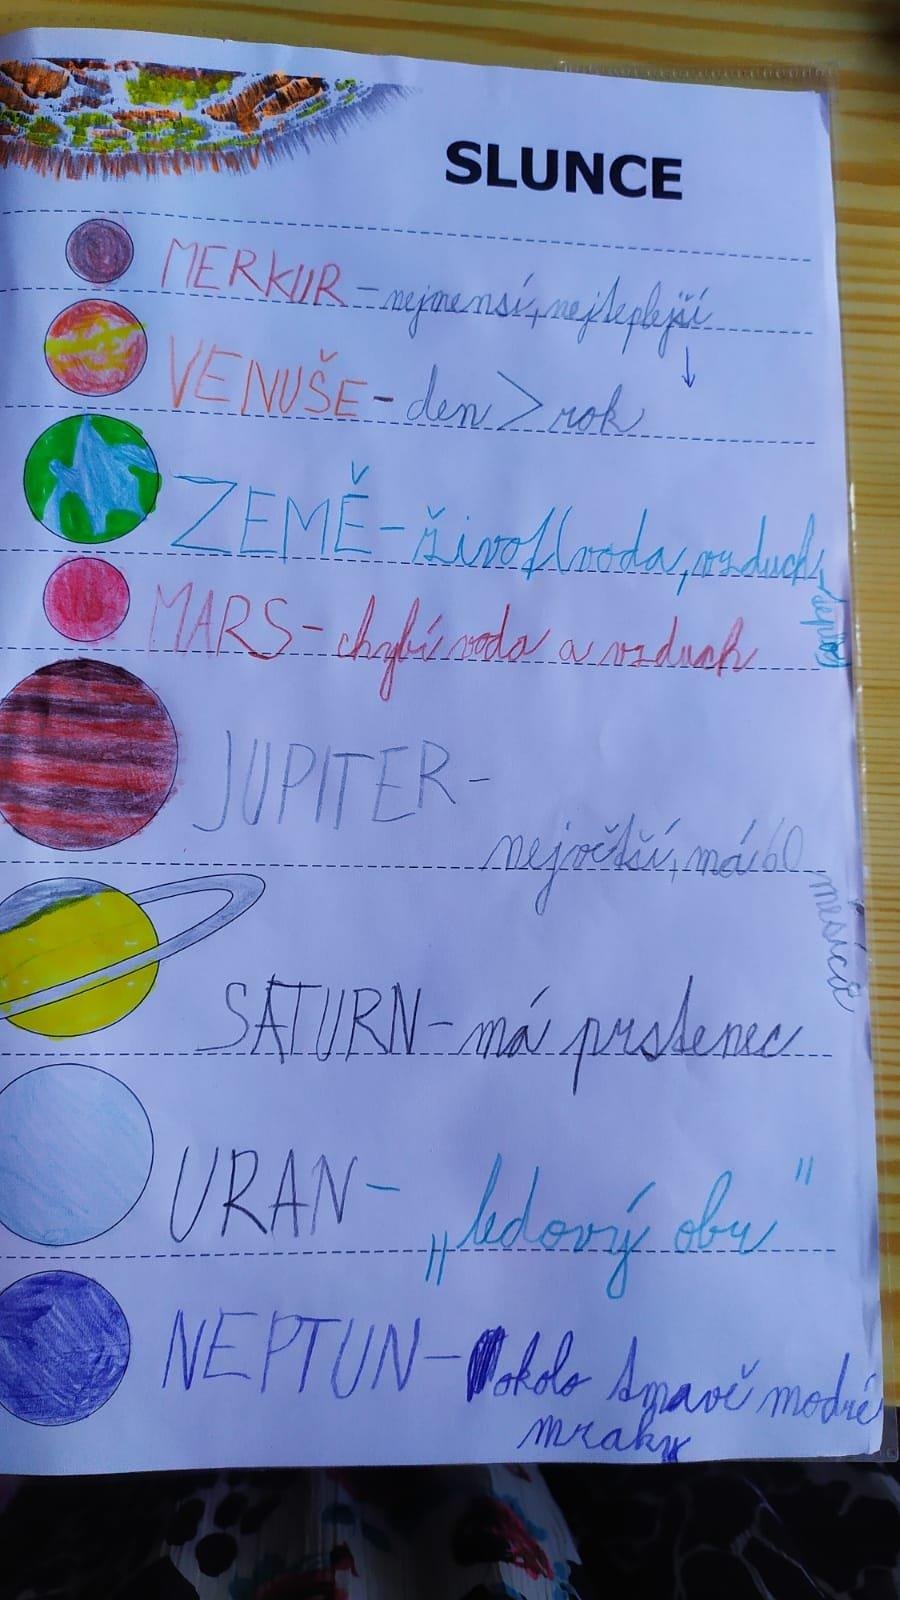 SLUNCE
MERKUR - nejmensí, nejteplejší
↓
VENUŠE - den > rok
ZEMĚ - život (voda, vzduch,
teplo)
MARS - chybí voda a vzduch
JUPITER -
největší, má 60
mesíců
SATURN - má prstenec
URAN - „ledový obr"
NEPTUN - okolo tmavě modré
mraky